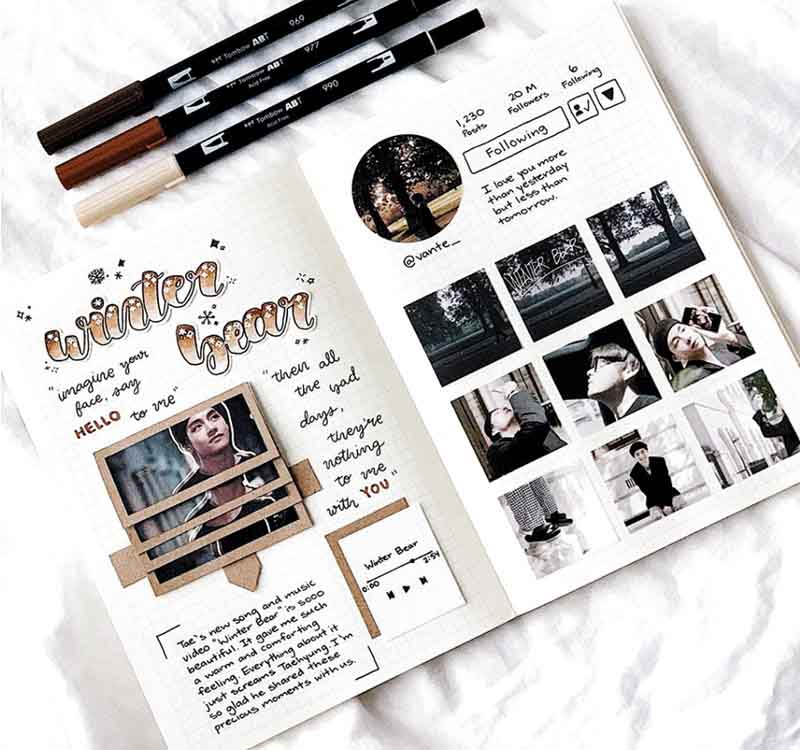 Tombow ABT 969
Acid Free
Tombow ABT 977
Acid Free
Tombow ABT 990
Acid Free
winter
bear
"imagine your
face, say
HELLO to me"
"then all
the bad
days,
they're
nothing
to me
with YOU"
Winter Bear
0:00 2:54
Tae's new song and music
video "Winter Bear" is sooo
beautiful. It gave me such
a warm and comforting
feeling. Everything about it
just screams Taehyung. I'm
so glad he shared these
precious moments with us.
1,230 20 M 6
Posts Followers Following
Following
I love you more
than yesterday
but less than
tomorrow.
@vante_
WINTER BEAR